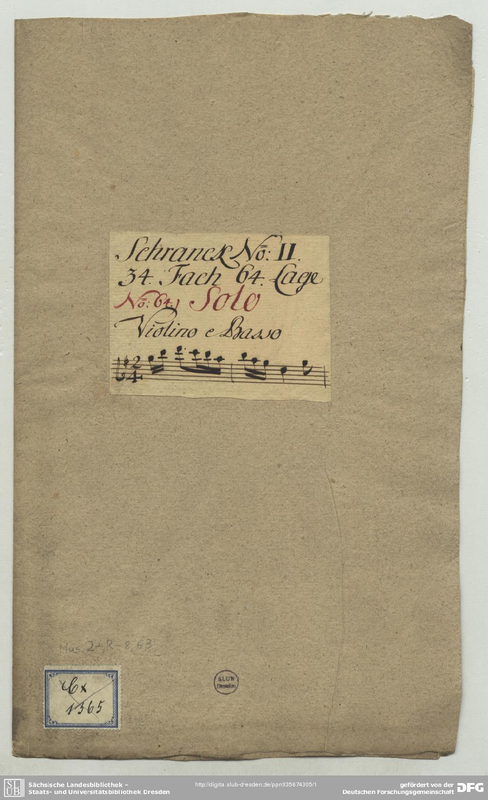 Schranck No: II.
34. Fach 64. Lage
No: 64, Solo
Violino e Basso
2
4
Mus. 2-R-8,63
Cx
1365
SLUB
Sächsische Landesbibliothek –
Staats- und Universitätsbibliothek Dresden
http://digital.slub-dresden.de/ppn335674305/1
gefördert von der
Deutschen Forschungsgemeinschaft
DFG